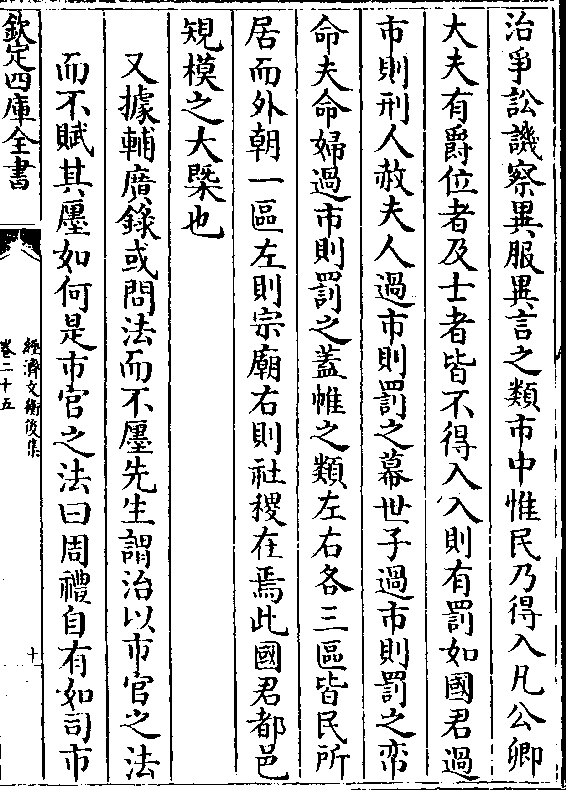 治爭訟譏察異服異言之類市中惟民乃得入凡公卿
大夫有爵位者及士者皆不得入入則有罰如國君過
市則刑人赦夫人過市則罰之幕世子過市則罰之帟
命夫命婦過市則罰之蓋帷之類左右各三區皆民所
居而外朝一區左則宗廟右則社稷在焉此國君都邑
規模之大槩也
又據輔廣錄或問法而不廛先生謂治以市官之法
而不賦其廛如何是市官之法曰周禮自有如司市
欽定四庫全書
經濟文衡後集
卷二十五
十